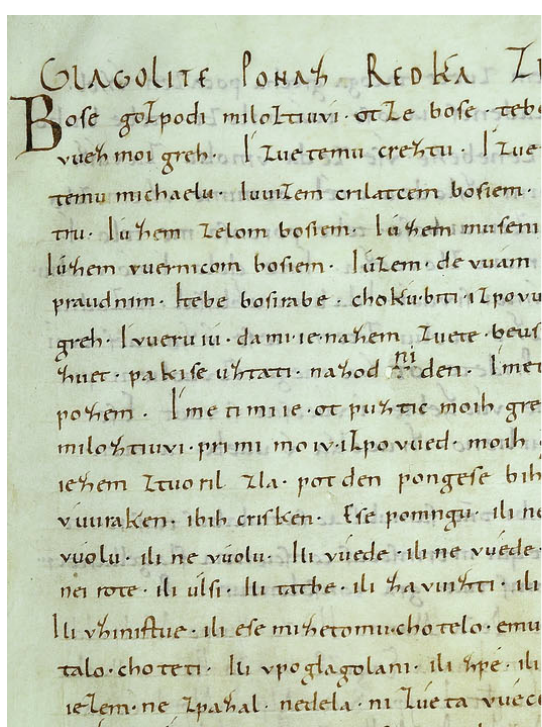 GLAGOLITE PONAZ REDKA ZL
Bose gozpodi miloztiuvi · otze bose · tebe
vueh moi greh · I zuetemu creztu · I zue
temu michaelu · Iuuizem crilatcem bosiem ·
tru · Iuzhem zelom bosiem · Iuzhem museni
Iuzhem vuernicom bosiem · Iuzem · devuam
praudnim · Itebe bosirabe · chokubiti · izpovu
greh · I vueruiu · da mi · ie · nazem zuete · beus
zuet · pakise uztati · nazod ni den · Imet
pozem · Ime ti mi ie · ot puztic moih gre
miloztiuvi · primi moiv · izpovued · moih
iezem ztuoril zla · pot den pongese bih
vuuraken · ibih crisken · Ese pomngu · ili ne
vuolu · ili ne vuolu · Ili vuede · ili ne vuede ·
nei rote · ili ulsi · Ili tatbe · ili zavuizti · ili
Ili vzmaztue · ili ese mizetomu · chotelo · emu
talo · choteti · Ili vpoglagolani · ili zpé · ili
iezem · ne zpazal · nedela · ni zueta vuece